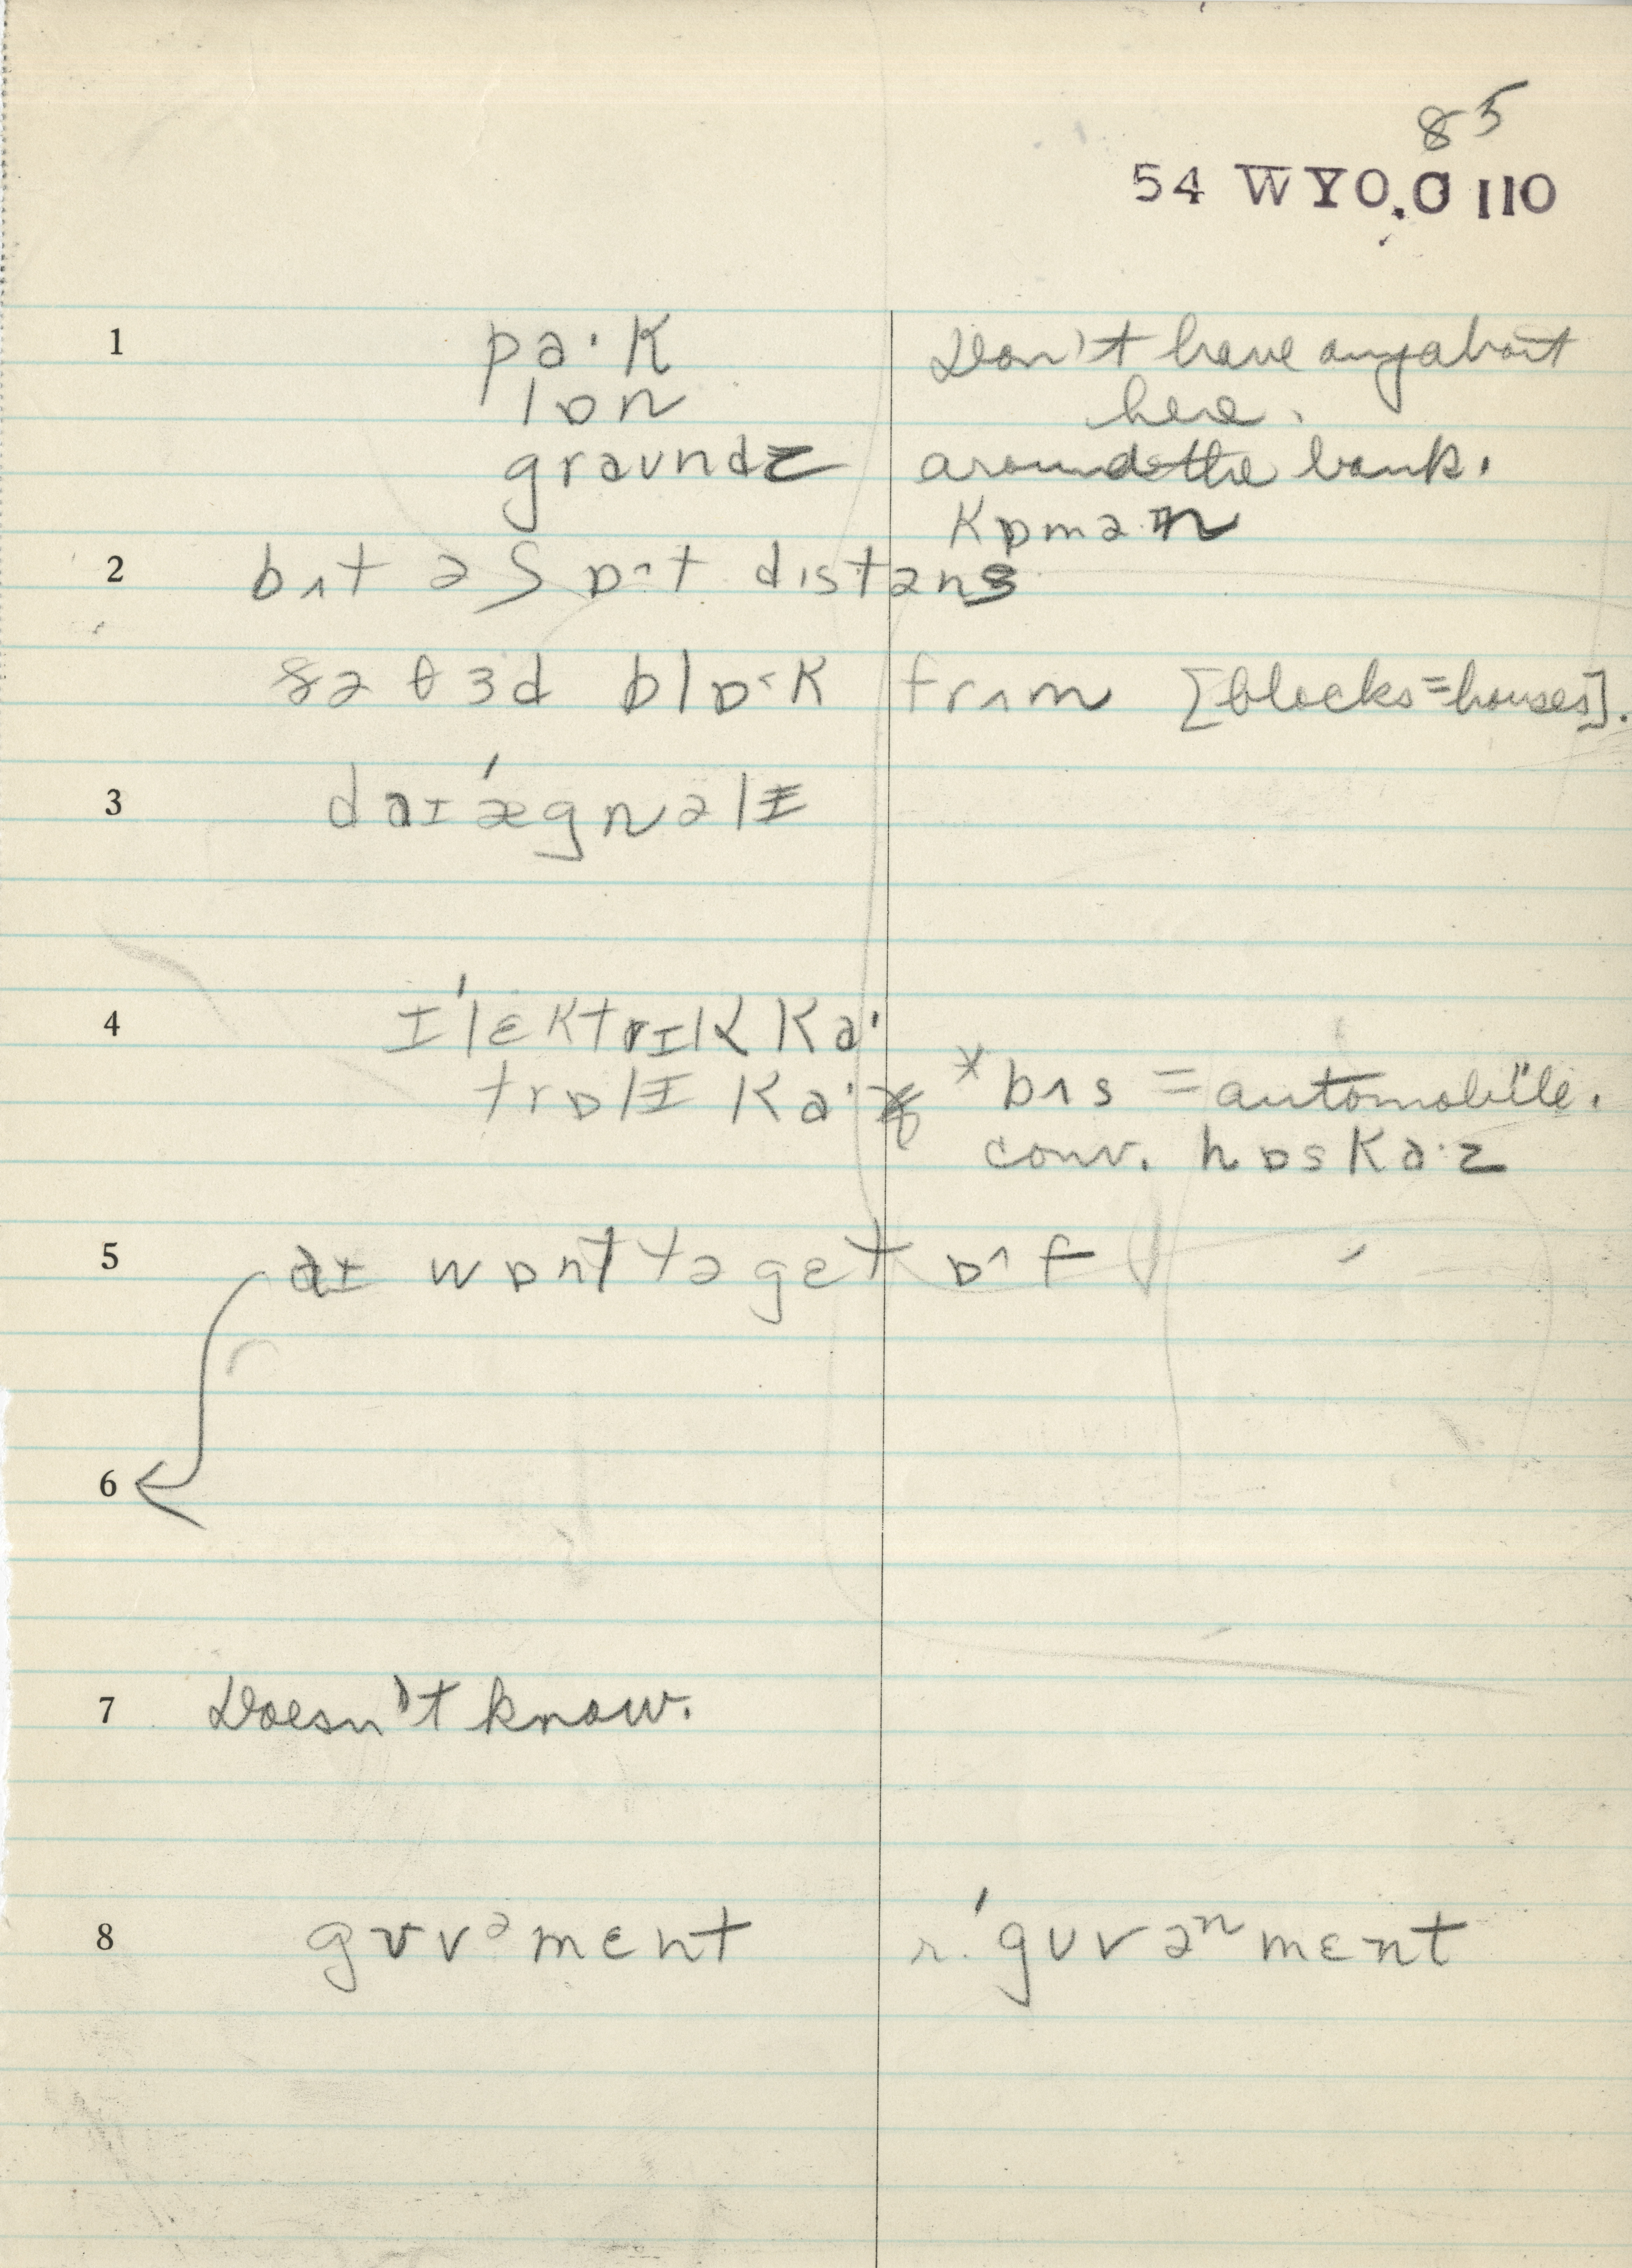 85
54 WYO.O 110
1 pa·k Don't have any about
lɒn here.
graundz around the bank.
kɒmən
2 bʌt ə ʃɒ˄t distəns
ðə θɜd blɒ˂k frʌm [blocks=houses].
3 daɪˈægnəlɪ
4 ɪˈlɛktrɪk ka·
trɒlɪ ka·* *bʌs = automobile.
conv. hɒska·z
5 aɪ wɒnt tə gɛt ɒ˄f
6
7 Doesn't know.
8 gʊvᵊmɛnt r. ˈgʊvəⁿmɛnt